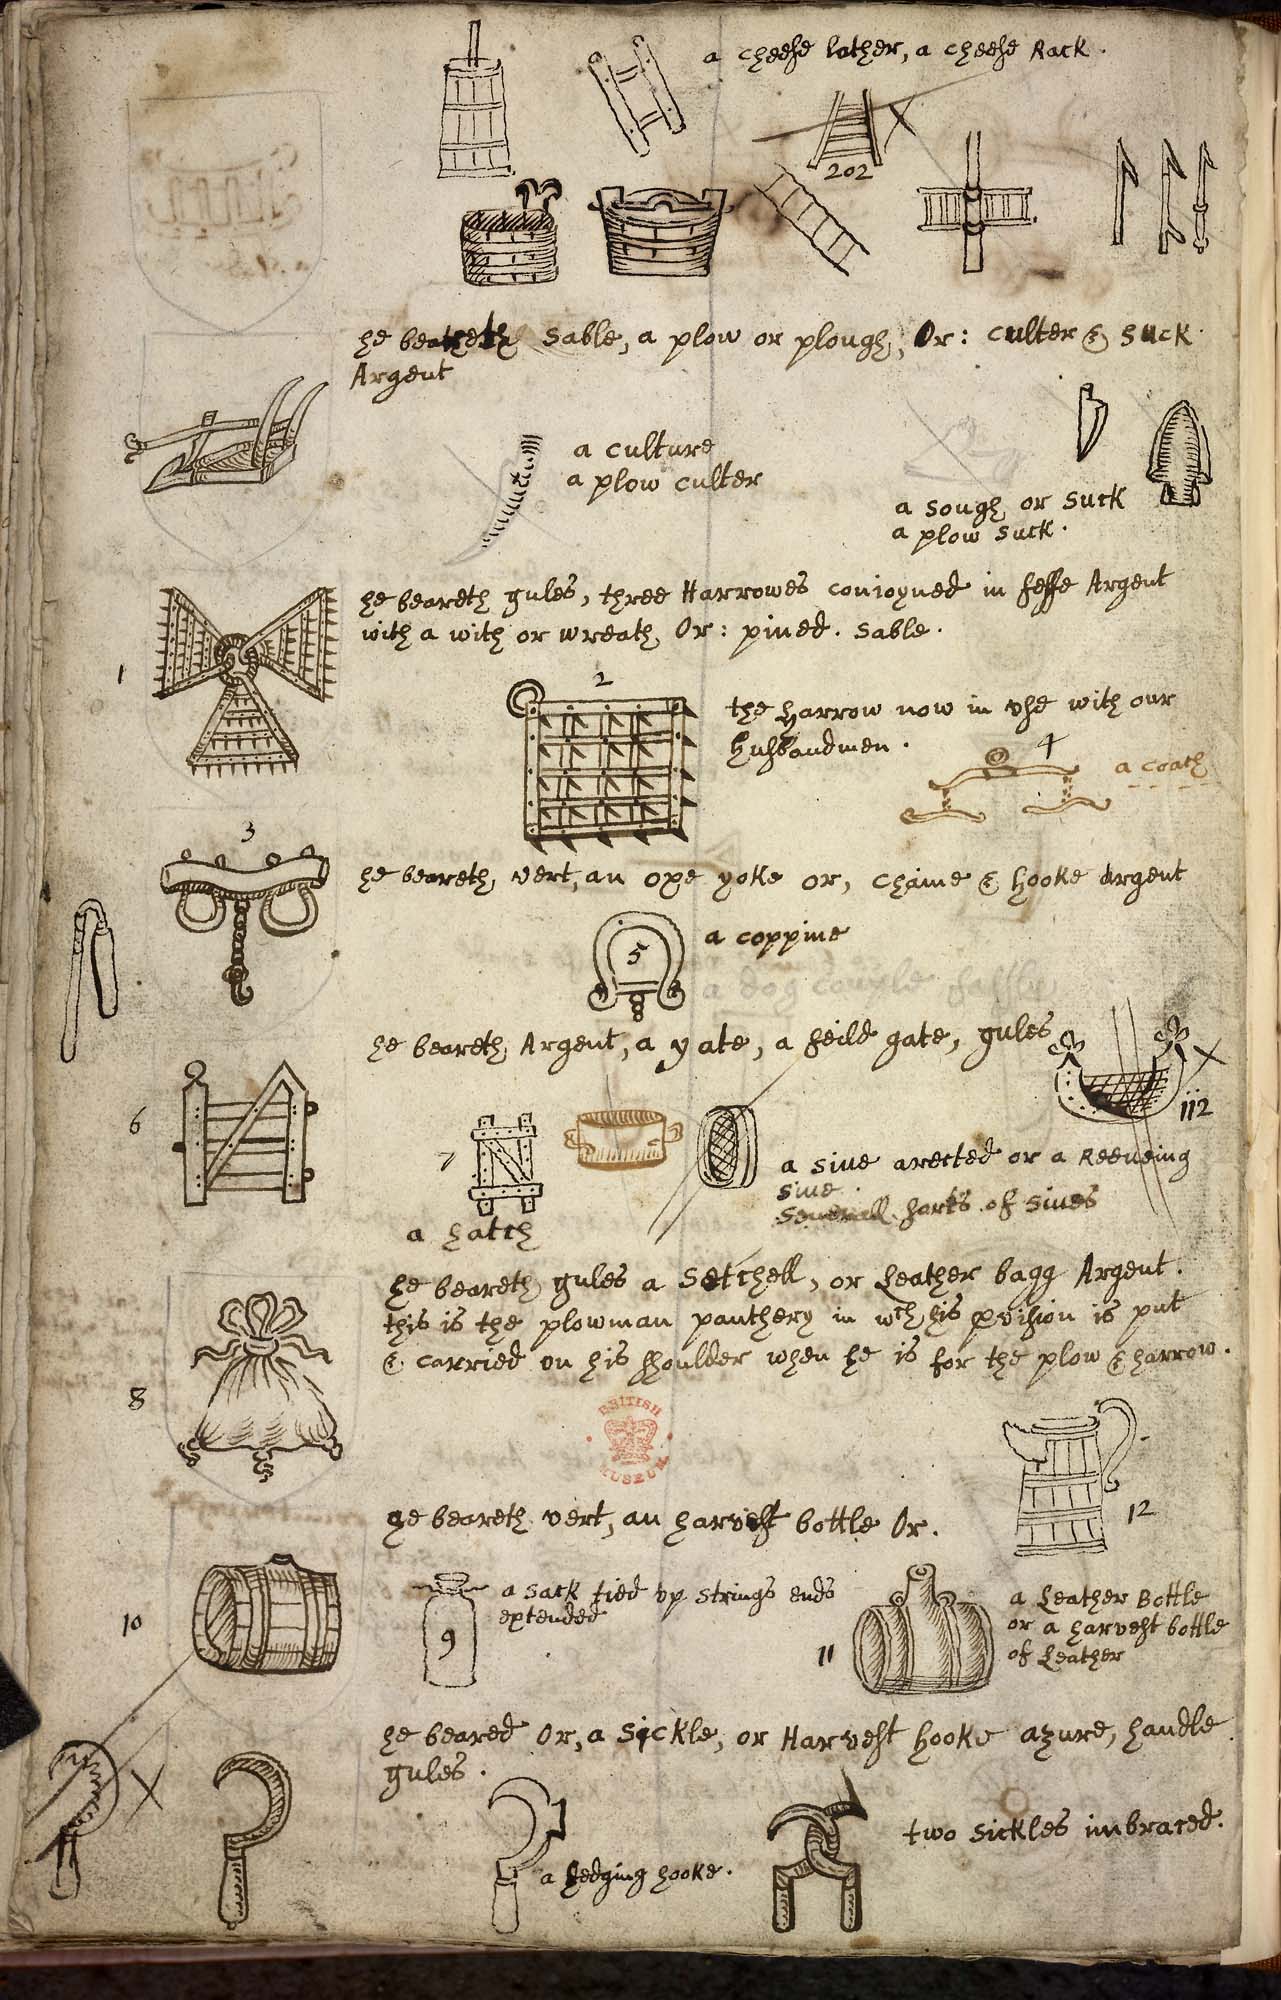 a cheese lather, a cheese Rack.
202
he beareth sable, a plow or plough, Or: culter & suck
Argent
a culture
a plow culter
a sough or suck
a plow suck.
he beareth gules, three Harrowes conioyned in fesse Argent
with a with or wreath, Or: pined. sable.
1
2
the harrow now in vse with our
husbandmen.
4
a coath
3
he beareth, vert, an oxe yoke or, chaine & hooke argent
5
a coppine
a dog couple
he beareth, Argent, a yate, a feild gate, gules
112
6
7
a hatch
a sive arected or a Reeveing
sive.
severall sorts of sives
he beareth gules a Setchell, or Leather bagg Argent.
this is the plowman panthery in wch his pvision is put
& carried on his shoulder when he is for the plow & harrow.
8
BRITISH
MUSEUM
12
he beareth vert, an harvest bottle Or.
a sack tied vp strings ends
extended
9
10
11
a Leather Bottle
or a harvest bottle
of Leather
he beared Or, a Sickle, or Harvest hooke azure, handle
gules.
a hedging hooke.
two sickles imbraced.